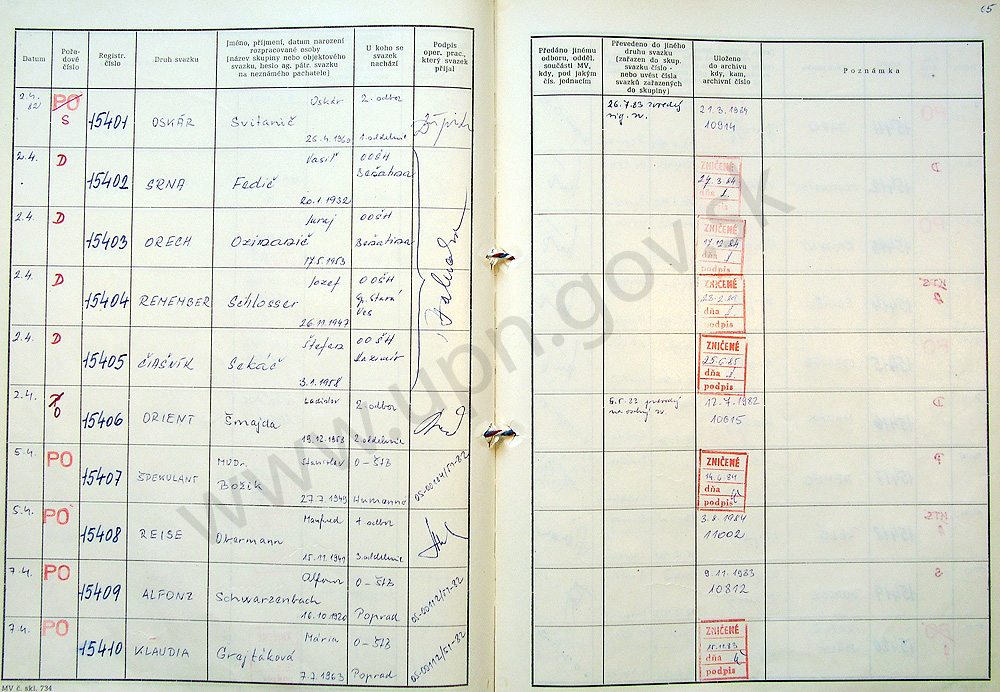 65
Datum
Pořa-
dové
číslo
Registr.
číslo
Druh svazku
Jméno, příjmení, datum narození
rozpracované osoby
(název skupiny nebo objektového
svazku, heslo ag. pátr. svazku
na neznámého pachatele)
U koho se
svazek
nachází
Podpis
oper. prac.,
který svazek
přijal
Předáno jinému
odboru, odděl.
součásti MV,
kdy, pod jakým
čís. jednacím
Převedeno do jiného
druhu svazku
(zařazen do skup.
svazku číslo -
nebo uvést čísla
svazků zařazených
do skupiny)
Uloženo
do archivu
kdy, kam,
archivní číslo
Poznámka
2.4.
82
PO
S
15401
OSKÁR
Oskár
Svitanič
26.4.1960
2. odbor
1. oddelenie
26.7.83
21.3.1984
10914
2.4.
D
15402
SRNA
Vasiľ
Fedič
20.1.1932
OOŠH
ZNIČENÉ
27.3.84
dňa
podpis
2.4.
D
15403
ORECH
Juraj
17.5.1953
OOŠH
ZNIČENÉ
17.12.84
dňa
podpis
2.4.
D
15404
REMEMBER
Jozef
Schlosser
26.11.1947
OOŠH
Sp. Stará
Ves
ZNIČENÉ
dňa
podpis
2.4.
D
15405
ČIAŠNÍK
Štefan
Sekáč
3.1.1958
OOŠH
ZNIČENÉ
25.6.85
dňa
podpis
2.4.
O
15406
ORIENT
Ladislav
Šmajda
19.12.1953
2. odbor
2. oddelenie
12.7.1982
10615
5.4.
PO
15407
ŠPEKULANT
MVDr.
Stanislav
Božik
27.7.1949
O-ŠTB
Humenné
OS-00114/51-82
ZNIČENÉ
14.6.84
dňa
podpis
5.4.
PO
15408
REISE
Manfred
Obermann
15.11.1941
1. odbor
3. oddelenie
3.8.1984
11002
7.4.
PO
15409
ALFONZ
Alfonz
Schwarzenbach
16.10.1920
O-ŠTB
Poprad
OS-00112/51-82
9.11.1983
10812
7.4.
PO
15410
KLAUDIA
Mária
Grajtáková
7.7.1963
O-ŠTB
Poprad
OS-00112/51-82
ZNIČENÉ
15.11.83
dňa
podpis
MV č. skl. 734
www.upn.gov.sk